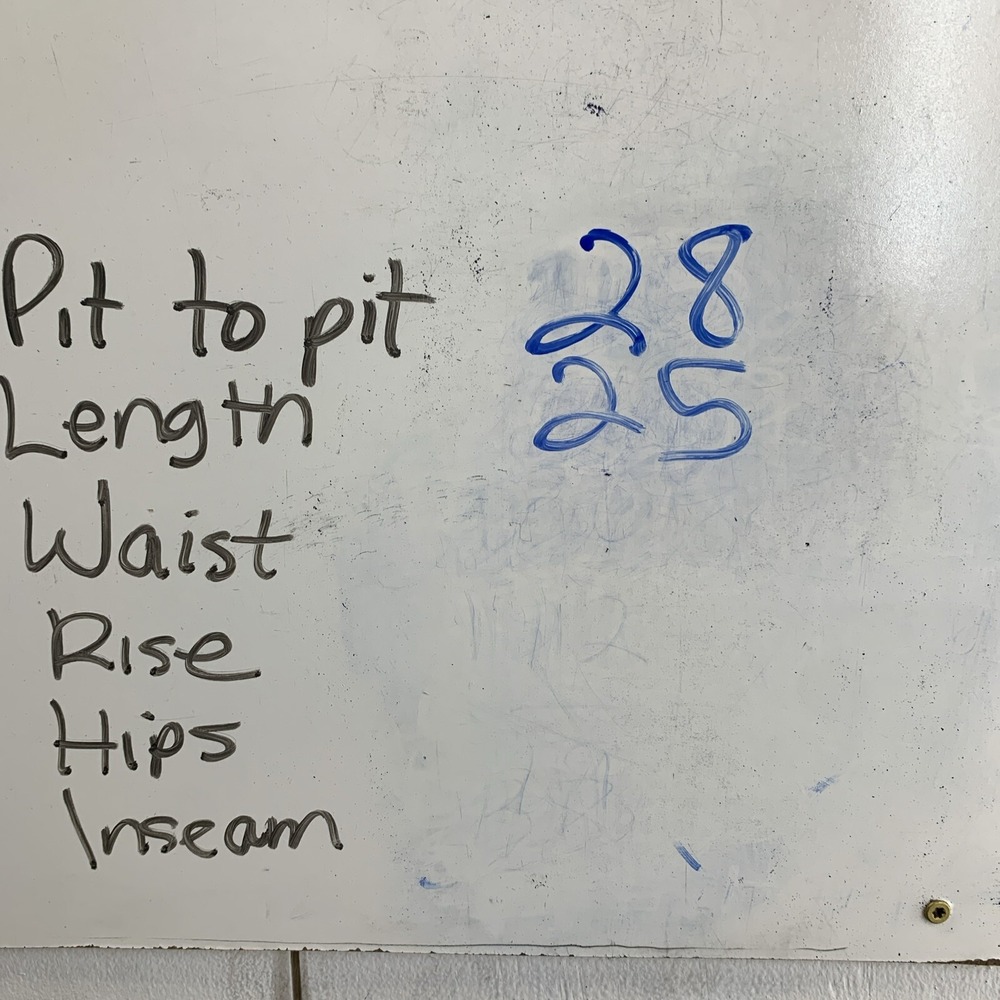 Pit to pit 28
Length 25
Waist
Rise
Hips
Inseam